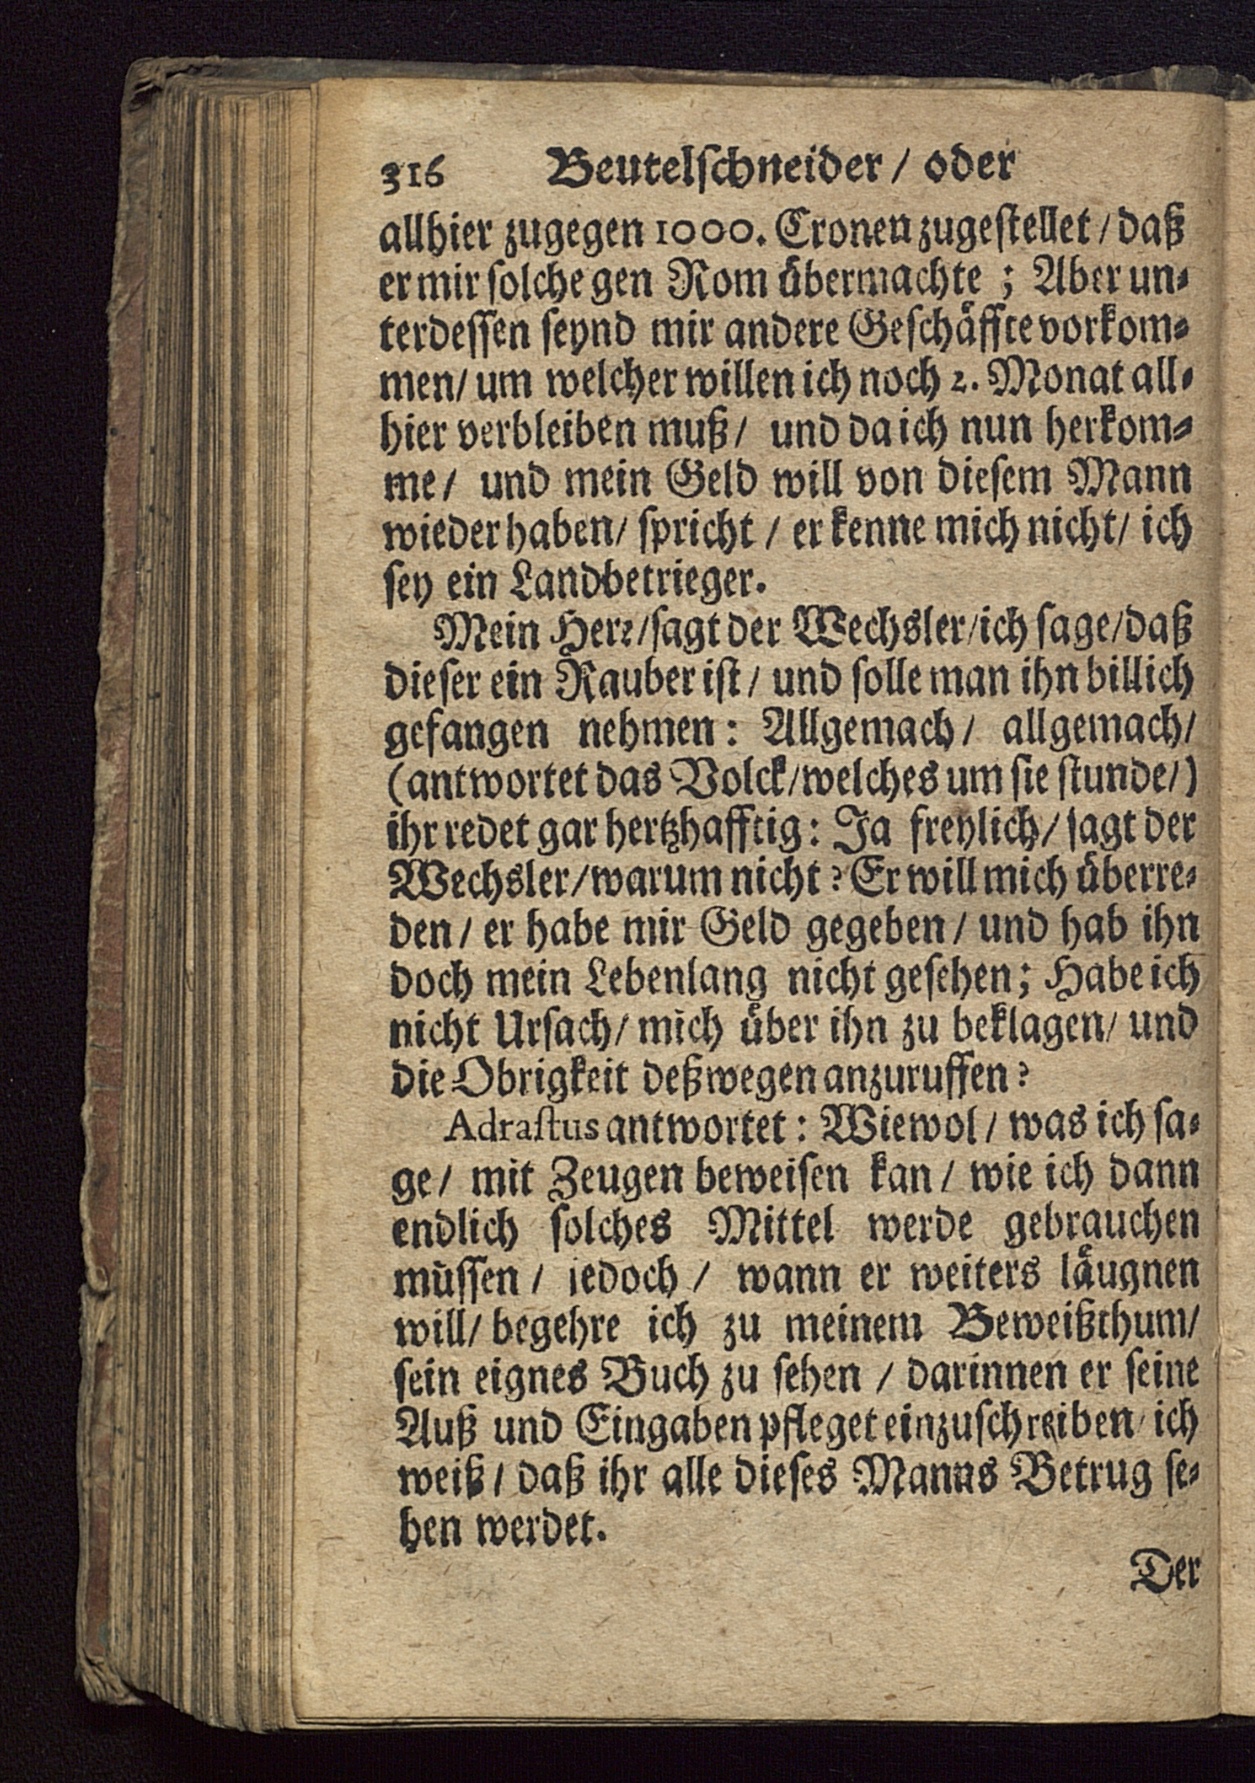 316 Beutelſchneider / oder
allhier zugegen 1000. Cronen zugeſtellet / daß
er mir ſolche gen Rom uͤbermachte ; Aber un⸗
terdeſſen ſeynd mir andere Geſchaͤffte vorkom⸗
men/ um welcher willen ich noch 2. Monat all⸗
hier verbleiben muß/ und da ich nun herkom⸗
me/ und mein Geld will von dieſem Mann
wieder haben/ ſpricht / er kenne mich nicht/ ich
ſey ein Landbetrieger.
Mein Herꝛ/ſagt der Wechsler/ich ſage/daß
dieſer ein Rauber iſt / und ſolle man ihn billich
gefangen nehmen: Allgemach/ allgemach/
(antwortet das Volck/welches um ſie ſtunde/)
ihr redet gar hertzhafftig: Ja freylich/ ſagt der
Wechsler/warum nicht? Er will mich uͤberre⸗
den/ er habe mir Geld gegeben/ und hab ihn
doch mein Lebenlang nicht geſehen; Habe ich
nicht Urſach/ mich uͤber ihn zu beklagen/ und
die Obrigkeit deßwegen anzuruffen?
Adraſtus antwortet: Wiewol / was ich ſa⸗
ge/ mit Zeugen beweiſen kan / wie ich dann
endlich ſolches Mittel werde gebrauchen
muͤſſen / jedoch / wann er weiters laͤugnen
will/ begehre ich zu meinem Beweißthum/
ſein eignes Buch zu ſehen / darinnen er ſeine
Auß und Eingaben pfleget einzuſchreiben/ ich
weiß / daß ihr alle dieſes Manns Betrug ſe⸗
hen werdet.
Der